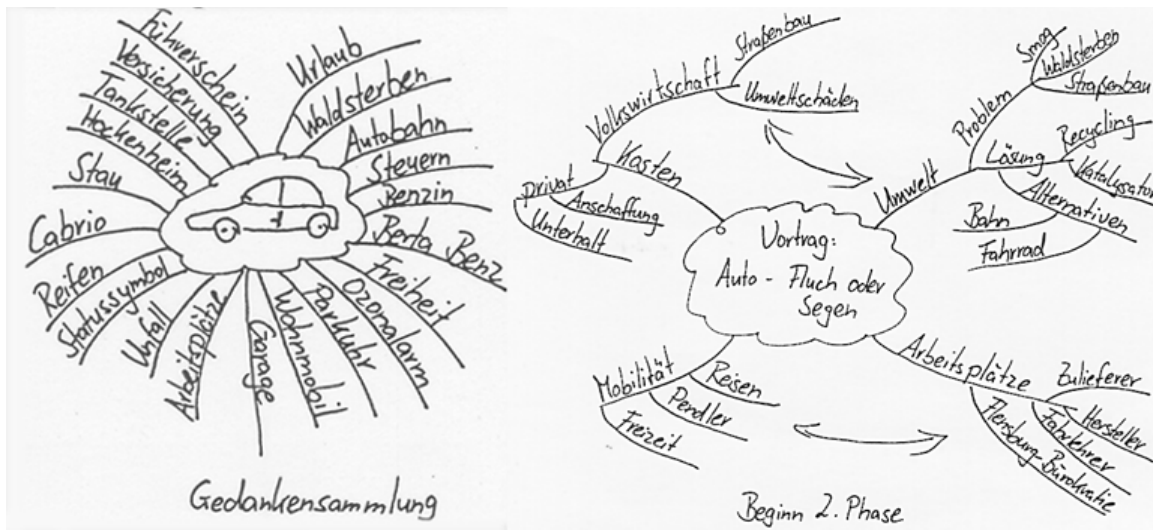 Führerschein
Versicherung
Tankstelle
Hockenheim
Stau
Cabrio
Reifen
Statussymbol
Unfall
Arbeitsplätze
Garage
Wohnmobil
Parkuhr
Ozonalarm
Freiheit
Berta Benz
Benzin
Steuern
Autobahn
Waldsterben
Urlaub
Gedankensammlung
Vortrag:
Auto - Fluch oder
Segen
Kosten
Volkswirtschaft
Straßenbau
Umweltschäden
privat
Anschaffung
Unterhalt
Umwelt
Problem
Smog
Waldsterben
Straßenbau
Lösung
Recycling
Katalysator
Alternativen
Bahn
Fahrrad
Mobilität
Reisen
Pendler
Freizeit
Arbeitsplätze
Zulieferer
Hersteller
Fahrlehrer
Flensburg-Bürokratie
Beginn 2. Phase